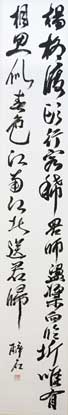 楊柳渡頭行客稀罟師盪槳向臨圻唯有
相思似春色江南江北送君歸
醉石